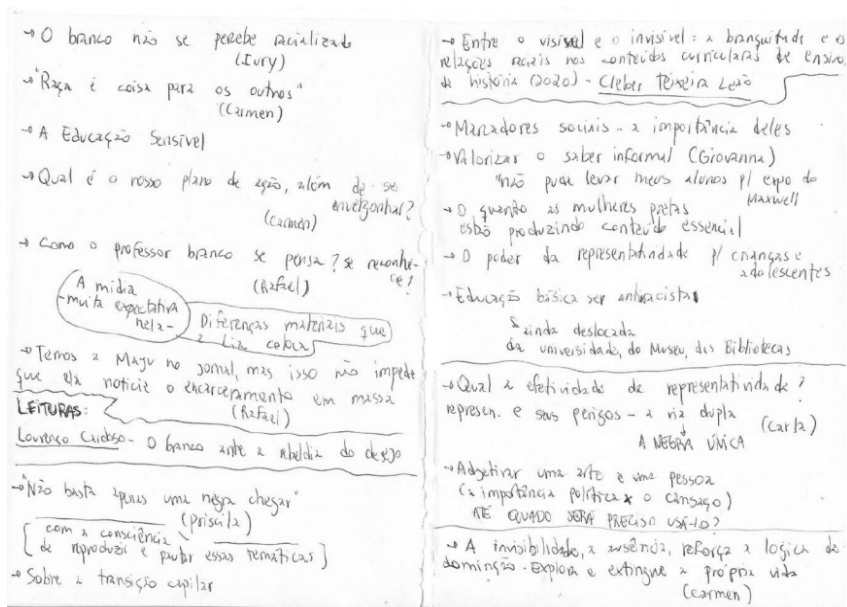 → O branco não se percebe racializado
(Iury)
→ "Raça é coisa para os outros"
(Carmen)
→ A Educação Sensível
→ Qual é o nosso plano de ação, além de se
envergonhar?
(Carmen)
→ Como o professor branco se pensa? se reconhe-
ce?
(Rafael)
A mídia
- muita expectativa
nela -
Diferenças materiais que
a Lia coloca
→ Temos a Maju no jornal, mas isso não impede
que ela noticie o encarceramento em massa
(Rafael)
LEITURAS:
Lourenço Cardoso - O branco ante a rebeldia do desejo
→ "Não basta apenas uma negra chegar"
(Priscila)
[com a consciência
de reproduzir e pautar essas temáticas]
→ Sobre a transição capilar
→ Entre o visível e o invisível: a branquitude e as
relações raciais nos conteúdos curriculares de ensino
de história (2020) - Cleber Teixeira Leão
→ Marcadores sociais - a importância deles
→ Valorizar o saber informal (Giovanna)
"não pude levar meus alunos p/ expo do
Maxwell
→ O quanto as mulheres pretas
estão produzindo conteúdo essencial
→ O poder da representatividade p/ crianças e
adolescentes
→ Educação básica ser antirracista
ainda deslocada
da universidade, do Museu, das Bibliotecas
→ Qual a efetividade da representatividade?
represen. e seus perigos - a via dupla
(Carla)
A NEGRA ÚNICA
→ Adjetivar uma arte e uma pessoa
(a importância política x o cansaço)
ATÉ QUADO SERÁ PRECISO USÁ-LO?
→ A invisibilidade, a ausência, reforça a lógica de
dominção. Explora e extingue a própria vida
(Carmen)